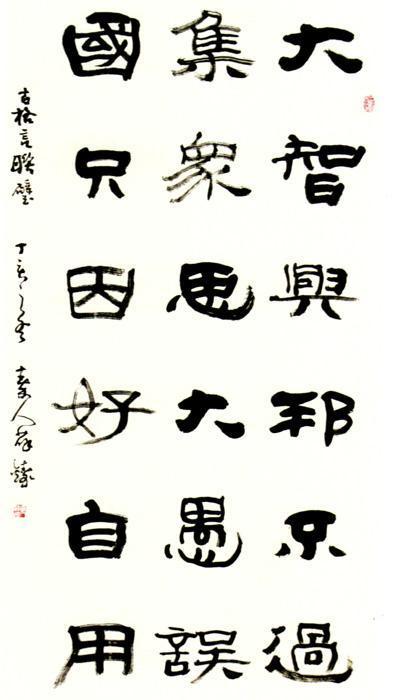 大智興邦不過
集衆思大愚誤
國只因好自用
古格言聯璧 丁亥之冬 秦人薛